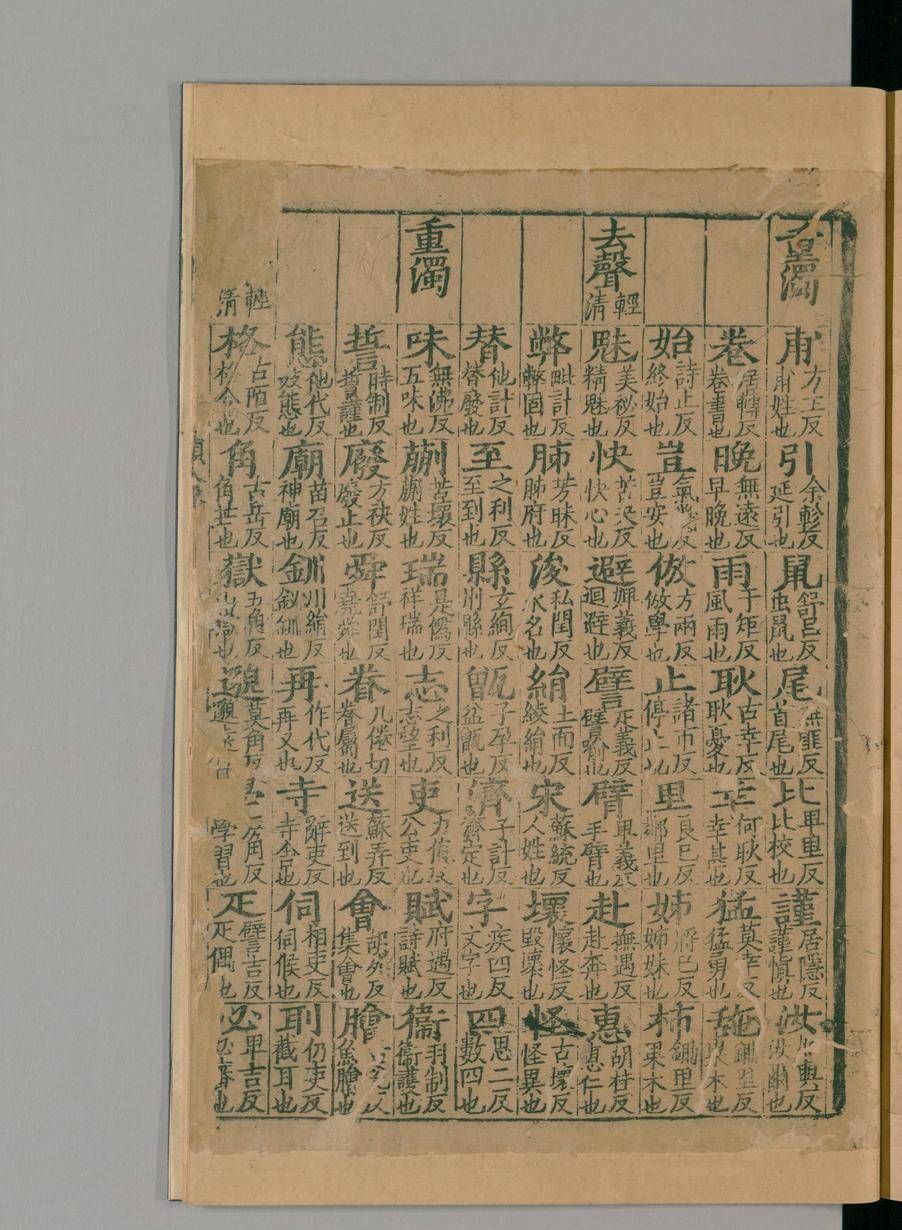 重濁
甫 方主反 甫姓也
引 余軫反 延引也
鼠 舒呂反 虫鼠也
尾 無匪反 首尾也
比 卑里反 比校也
謹 居隱反 謹慎也
汝 與反 汝爾也
卷 居轉反 卷書也
晚 無遠反 早晚也
雨 于矩反 風雨也
耿 古幸反 耿憂也
幸 何耿反 幸甚也
猛 莫幸反 猛勇也
鋤里反 木也
始 詩止反 終始也
豈 氣反 豈安也
倣 方兩反 倣學也
止 諸市反 停止也
里 良已反 鄉里也
姊 將已反 姊妹也
柿 鋤里反 果木也
去聲 輕清
魅 美祕反 精魅也
快 苦決反 快心也
避 婢義反 迴避也
譬 疋義反 譬喻也
臂 卑義反 手臂也
赴 撫遇反 赴奔也
惠 胡桂反 恩仁也
弊 毗計反 弊固也
肺 芳昧反 肺府也
浚 私閏反 水名也
絹 土面反 綾絹也
宋 蘇統反 人姓也
壞 懷怪反 毀壞也
怪 古壞反 怪異也
替 他計反 替廢也
至 之利反 至到也
縣 玄絢反 州縣也
甑 子孕反 盆甑也
濟 子計反 濟定也
字 疾四反 文字也
四 思二反 數四也
重濁
味 無沸反 五味也
蒯 苦壞反 蒯姓也
瑞 是偽反 祥瑞也
志 之利反 志望也
吏 力值反 公吏也
賦 府遇反 詩賦也
衞 羽制反 衞護也
誓 時制反 誓謹也
廢 方袂反 廢止也
舜 舒閏反 堯舜也
眷 几倦切 眷屬也
送 蘇弄反 送到也
會 胡外反 集會也
膾 魚膾也
態 他代反 妓態也
廟 苗召反 神廟也
釧 川絹反 釵釧也
再 作代反 再又也
寺 辭吏反 寺舍也
伺 相吏反 伺候也
刵 仍吏反 截耳也
輕清
格 古陌反 格令也
角 古岳反 角芒也
嶽 五角反 也
邈 莫角反 邈遠也
角反 學習也
疋 譬吉反 疋偶也
必 卑吉反 必審也